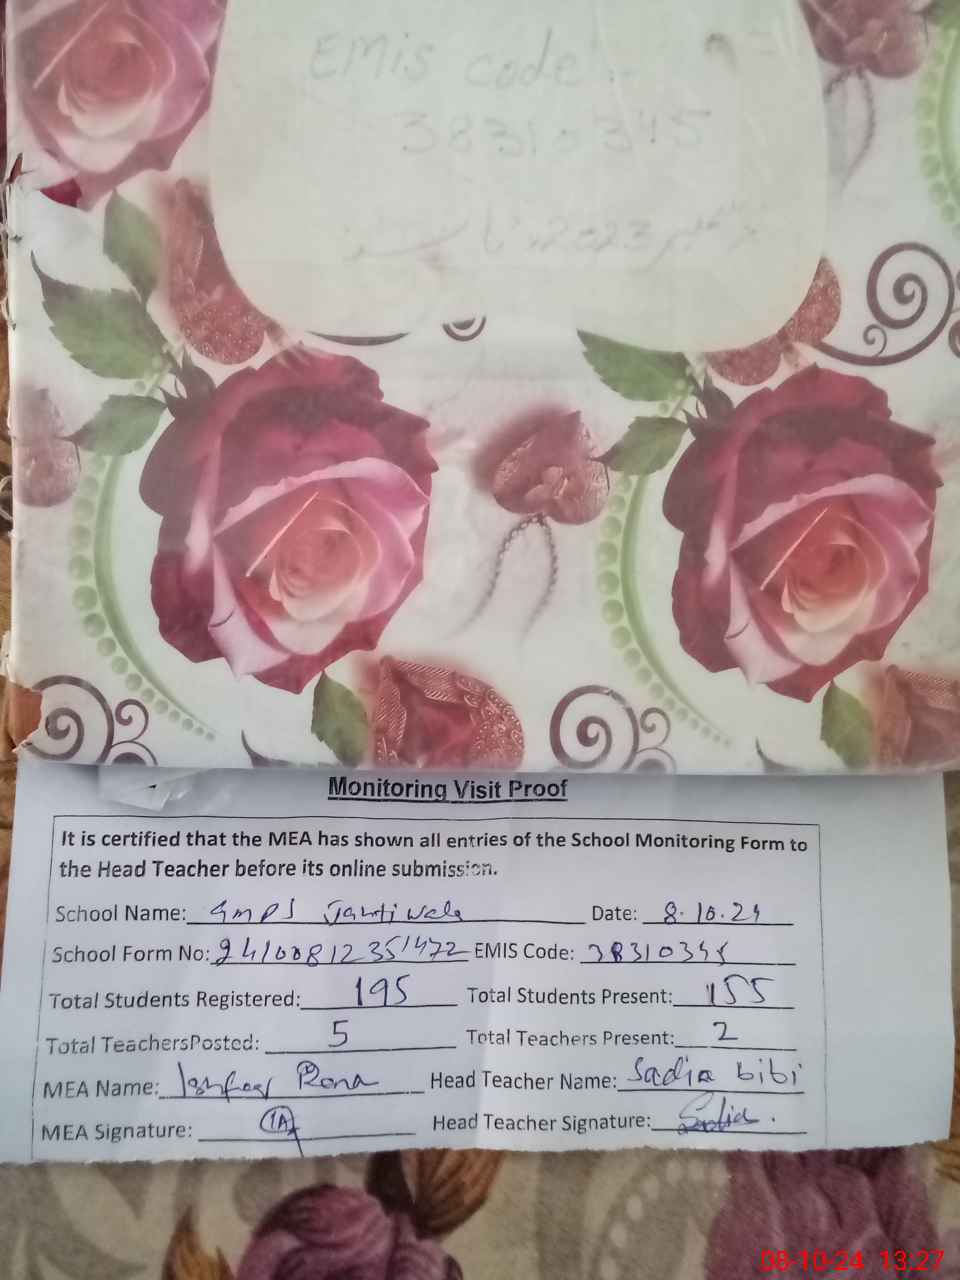 EMis code :-
38310345
2023
Monitoring Visit Proof
It is certified that the MEA has shown all entries of the School Monitoring Form to
the Head Teacher before its online submission.
School Name: GMPS Jantiwala Date: 8.10.24
School Form No: 24100812351472 EMIS Code: 38310345
Total Students Registered: 195 Total Students Present: 155
Total TeachersPosted: 5 Total Teachers Present: 2
MEA Name: Rana Head Teacher Name: Sadia bibi
MEA Signature: IA Head Teacher Signature: Sadia.
08-10-24 13:27